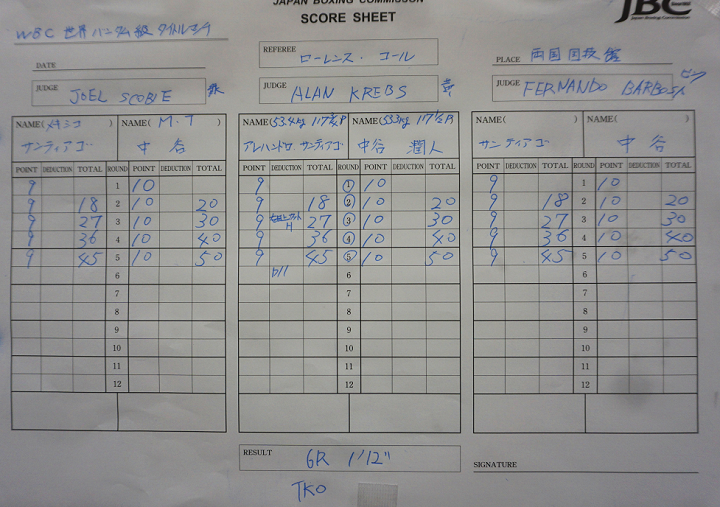 JAPAN BOXING COMMISSON
SCORE SHEET
JBC
Japan Boxing Commission
WBC 世界バンタム級 タイトルマッチ
DATE
REFEREE ローレンス・コール
PLACE 両国国技館
JUDGE JOEL SCOBIE
JUDGE ALAN KREBS
JUDGE FERNANDO BARBOSA
NAME(メキシコ) サンティアゴ NAME(M.T) 中谷
NAME(53.4kg 117 3/4 P) アレハンドロ.サンティアゴ NAME(53.3kg 117 1/2 P) 中谷 潤人
NAME( ) サンティアゴ NAME( ) 中谷
POINT DEDUCTION TOTAL ROUND POINT DEDUCTION TOTAL POINT DEDUCTION TOTAL ROUND POINT DEDUCTION TOTAL POINT DEDUCTION TOTAL ROUND POINT DEDUCTION TOTAL
9 1 10 9 ① 10 9 1 10
9 18 2 10 20 9 18 ② 10 20 9 18 2 10 20
9 27 3 10 30 9 27 ③ 10 30 9 27 3 10 30
9 36 4 10 40 9 36 ④ 10 40 9 36 4 10 40
9 45 5 10 50 9 45 ⑤ 10 50 9 45 5 10 50
6 6 6
7 7 7
8 8 8
9 9 9
10 10 10
11 11 11
12 12 12
RESULT 6R 1'12"
TKO
SIGNATURE